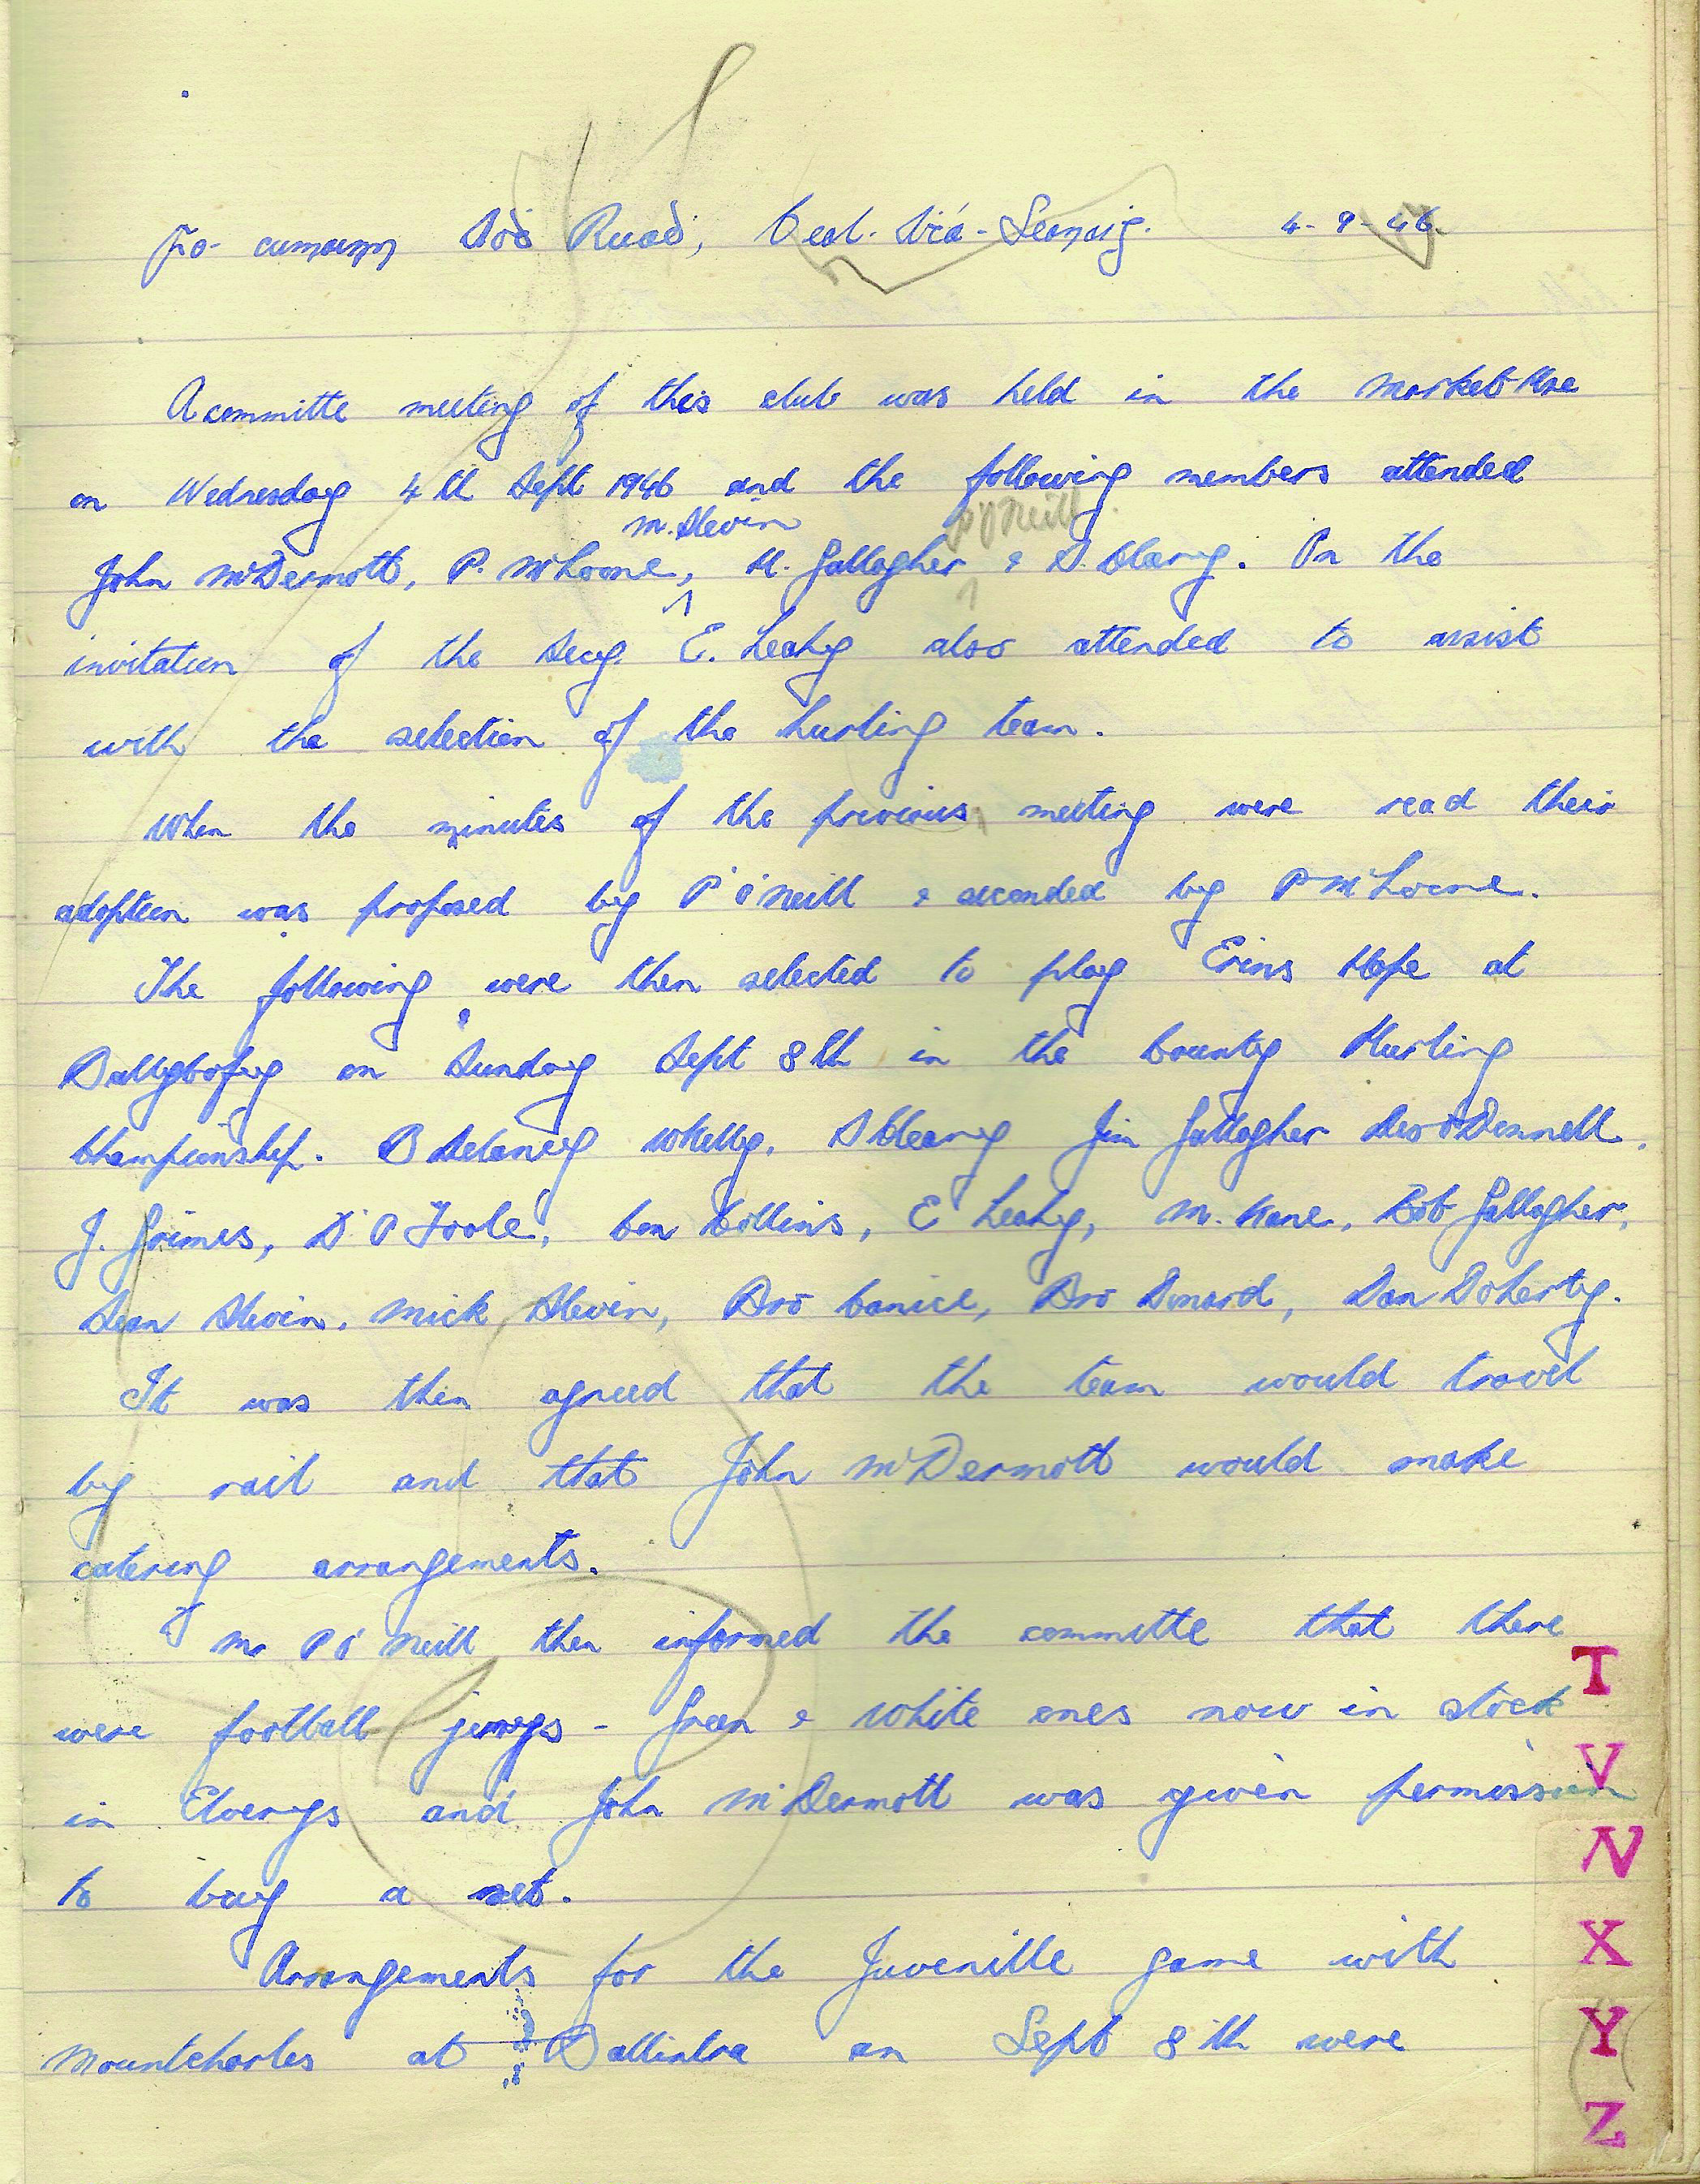 Fo- cumann Aoḋ Ruaḋ, Beal-Áṫa-Seanaiġ. 4-9-46.
A committe meeting of this club was held in the Market Hse
on Wednesday 4th Sept 1946 and the following members attended
M. Slevin P O'Neill
John McDermott, P. McLoone, H. Gallagher & S. Cleary. On the
invitation of the Secy. E. Leahy also attended to assist
with the selection of the hurling team.
When the minutes of the previous meeting were read their
adoption was proposed by P O'Neill & seconded by P McLoone.
The following were then selected to play Erins Hope at
Ballybofey on Sunday Sept 8th in the County Hurling
Championship. B Delaney W Kelly, S Cleary Jim Gallagher Des O'Donnell,
J. Grimes, D. O Toole, Con Collins, E Leahy, M. Kane, Bob Gallagher,
Sean Slevin, Mick Slevin, Bro Canice, Bro Donard, Dan Doherty.
It was then agreed that the team would travel
by rail and that John McDermott would make
catering arrangements.
Mr P O'Neill then informed the committe that there
were football jerseys - Green & White ones now in stock
in Elverys and John McDermott was given permission
to buy a set.
Arrangements for the Juvenille game with
Mountcharles at Ballintra on Sept 8th were
T
V
N
X
Y
Z